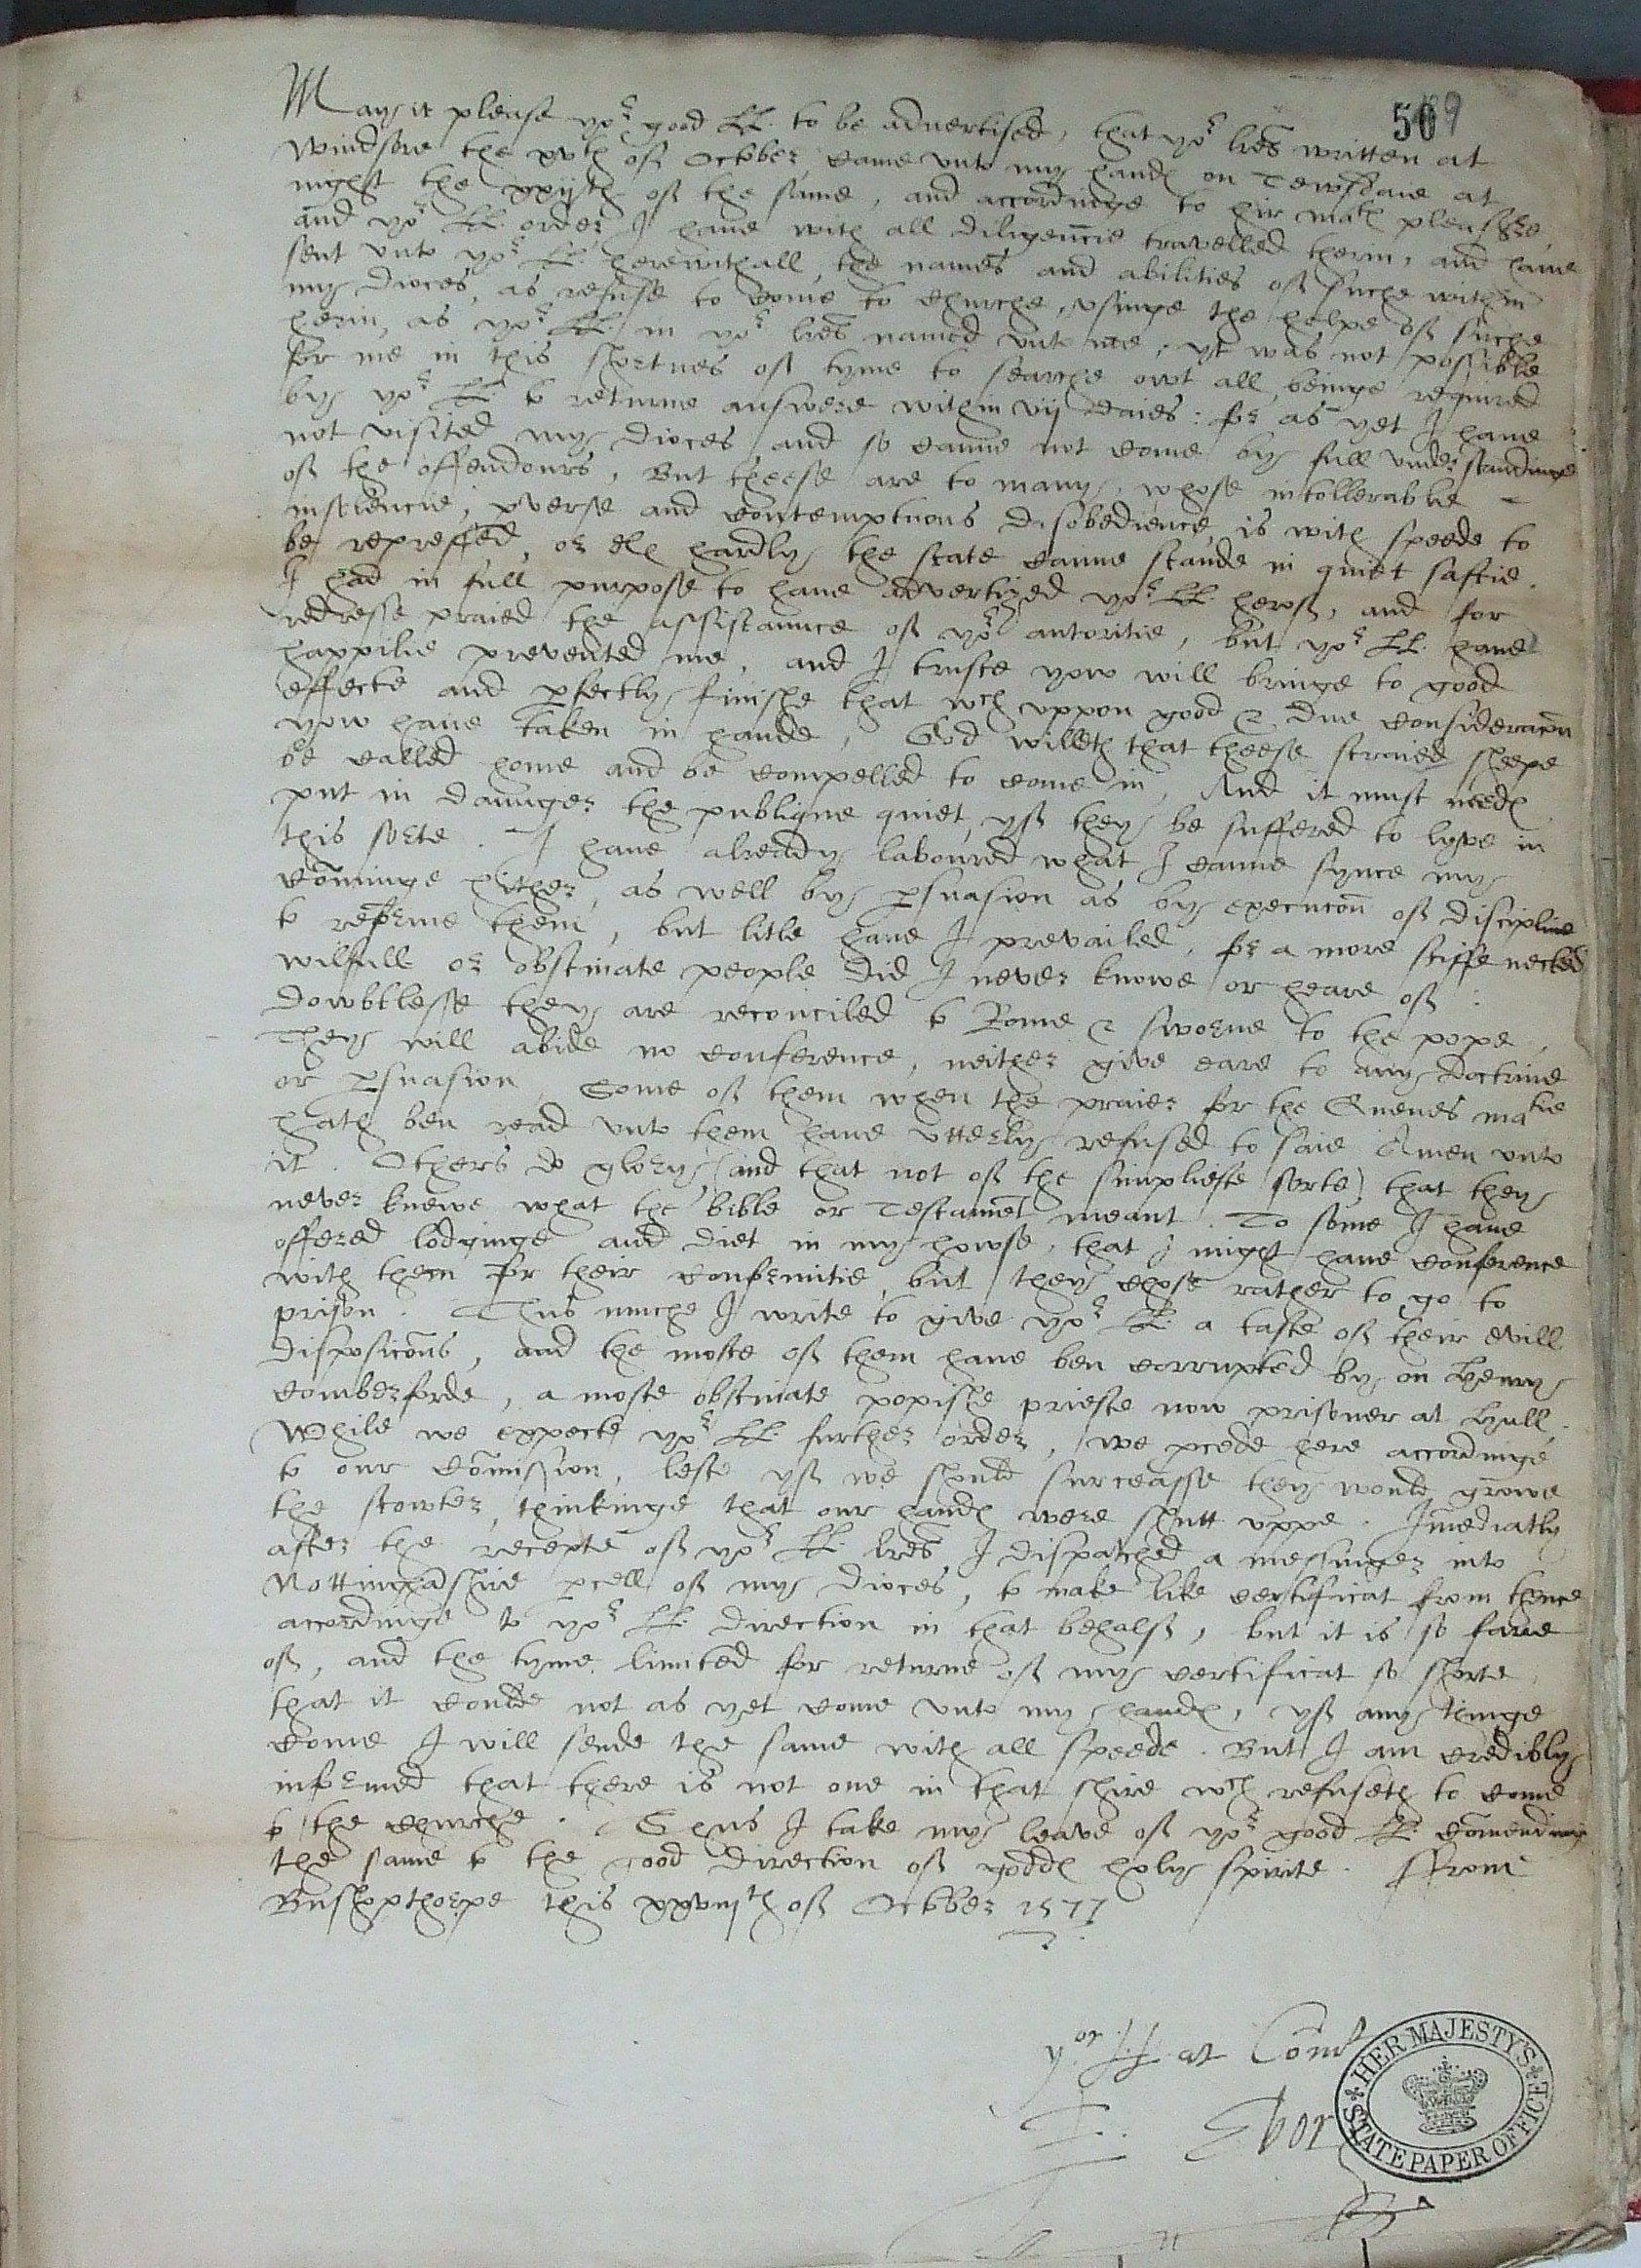 509
May it please yor good LL. to be advertised, that yor lres written at
Windsore the xvth of October came unto my handes on Tewsdaie at
night the xxijth of the same, and accordinge to hir maties pleasure,
and yor LL. order I have with all diligencie travelled therin, and have
sent unto yor LL. herewithall, the names and abilities of suche within
my dioces, as refuse to come to churche, usinge the helpe of suche
herin, as yor LL. in yor lres named unto me, yt was not possible
for me in this shortnes of tyme to searche owt all, beinge required
by yor LL. to returne answere within vij daies: for as yet I have
not visited my dioces, and so canne not come by full understandinge
of the offendours, But theese are to many, whose intollerable
insolencie, pverse and contemptuous disobedience, is with speede to
be repressed, or els hardly the state canne stande in quiet saftie.
I had in full purpose to have advertized yor LL. herof, and for
redresse praied the assistaunce of yor autoritie, but yor LL. have
happilie prevented me, and I truste yow will bringe to good
effecte and pfectly finishe that wch uppon good & due consideracon
yow have taken in hande, God willeth that theese straied sheepe
be called home and be compelled to come in, And it must needes
put in daunger the publique quiet, yf they be suffered to lyve in
this sorte. I have already laboured what I canne synce my
comminge hither, as well by psuasion as by execucon of discipline
to reforme them, but litle have I prevailed, for a more stiffe necked
wilfull or obstinate people did I never knowe or heare of:
Dowbtlesse they are reconciled to Rome & sworne to the pope,
They will abide no conference, neither give eare to any doctrine
or psuasion, Some of them when the praier for the Quenes matie
hath ben read unto them have utterly refused to saie Amen unto
it. Others do glory (and that not of the simplieste sorte) that they
never knewe what the bible or Testament meant. To some I have
offered lodginge and diet in my howse, that I might have conference
with them for their conformitie, but they chose rather to go to
prison. Thus muche I write to give yor LL. a taste of their evill
disposicons, and the moste of them have ben corrupted by on Henry
Comberforde, a moste obstinate popishe prieste now prisoner at Hull.
While we expecte yor LL. further order, we pcede here accordinge
to our Comission, leste yf we should surceasse they would growe
the stowter, thinkinge that our handes were shutt uppe. Imediatly
after the recepte of yor LL. lres I dispatched a messinger into
Nottinghashire pcell of my dioces, to make like certificat from thence
accordinge to yor LL. direction in that behalf, but it is so farre
of, and the tyme limited for returne of my certificat so shorte
that it coulde not as yet come unto my handes, yf any thinge
come I will sende the same with all speede. But I am credibly
informed that there is not one in that shire wch refuseth to come
to the churche. Thus I take my leave of yor good LL. Comendinge
the same to the good direction of goddes holy spirite. ffrom
Bushopthorpe this xxviijth of October 1577
yor LL at Com
Ebor
HER MAJESTY'S STATE PAPER OFFICE